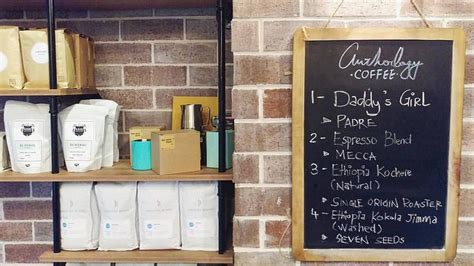 Anthology
COFFEE
1- Daddy's GIRL
- PADRE
2- Espresso Blend
- MECCA
3- Ethiopia Kochere
(Natural)
- SINGLE ORIGIN ROASTER
4- Ethiopia Kokola Jimma
(Washed)
- SEVEN SEEDS